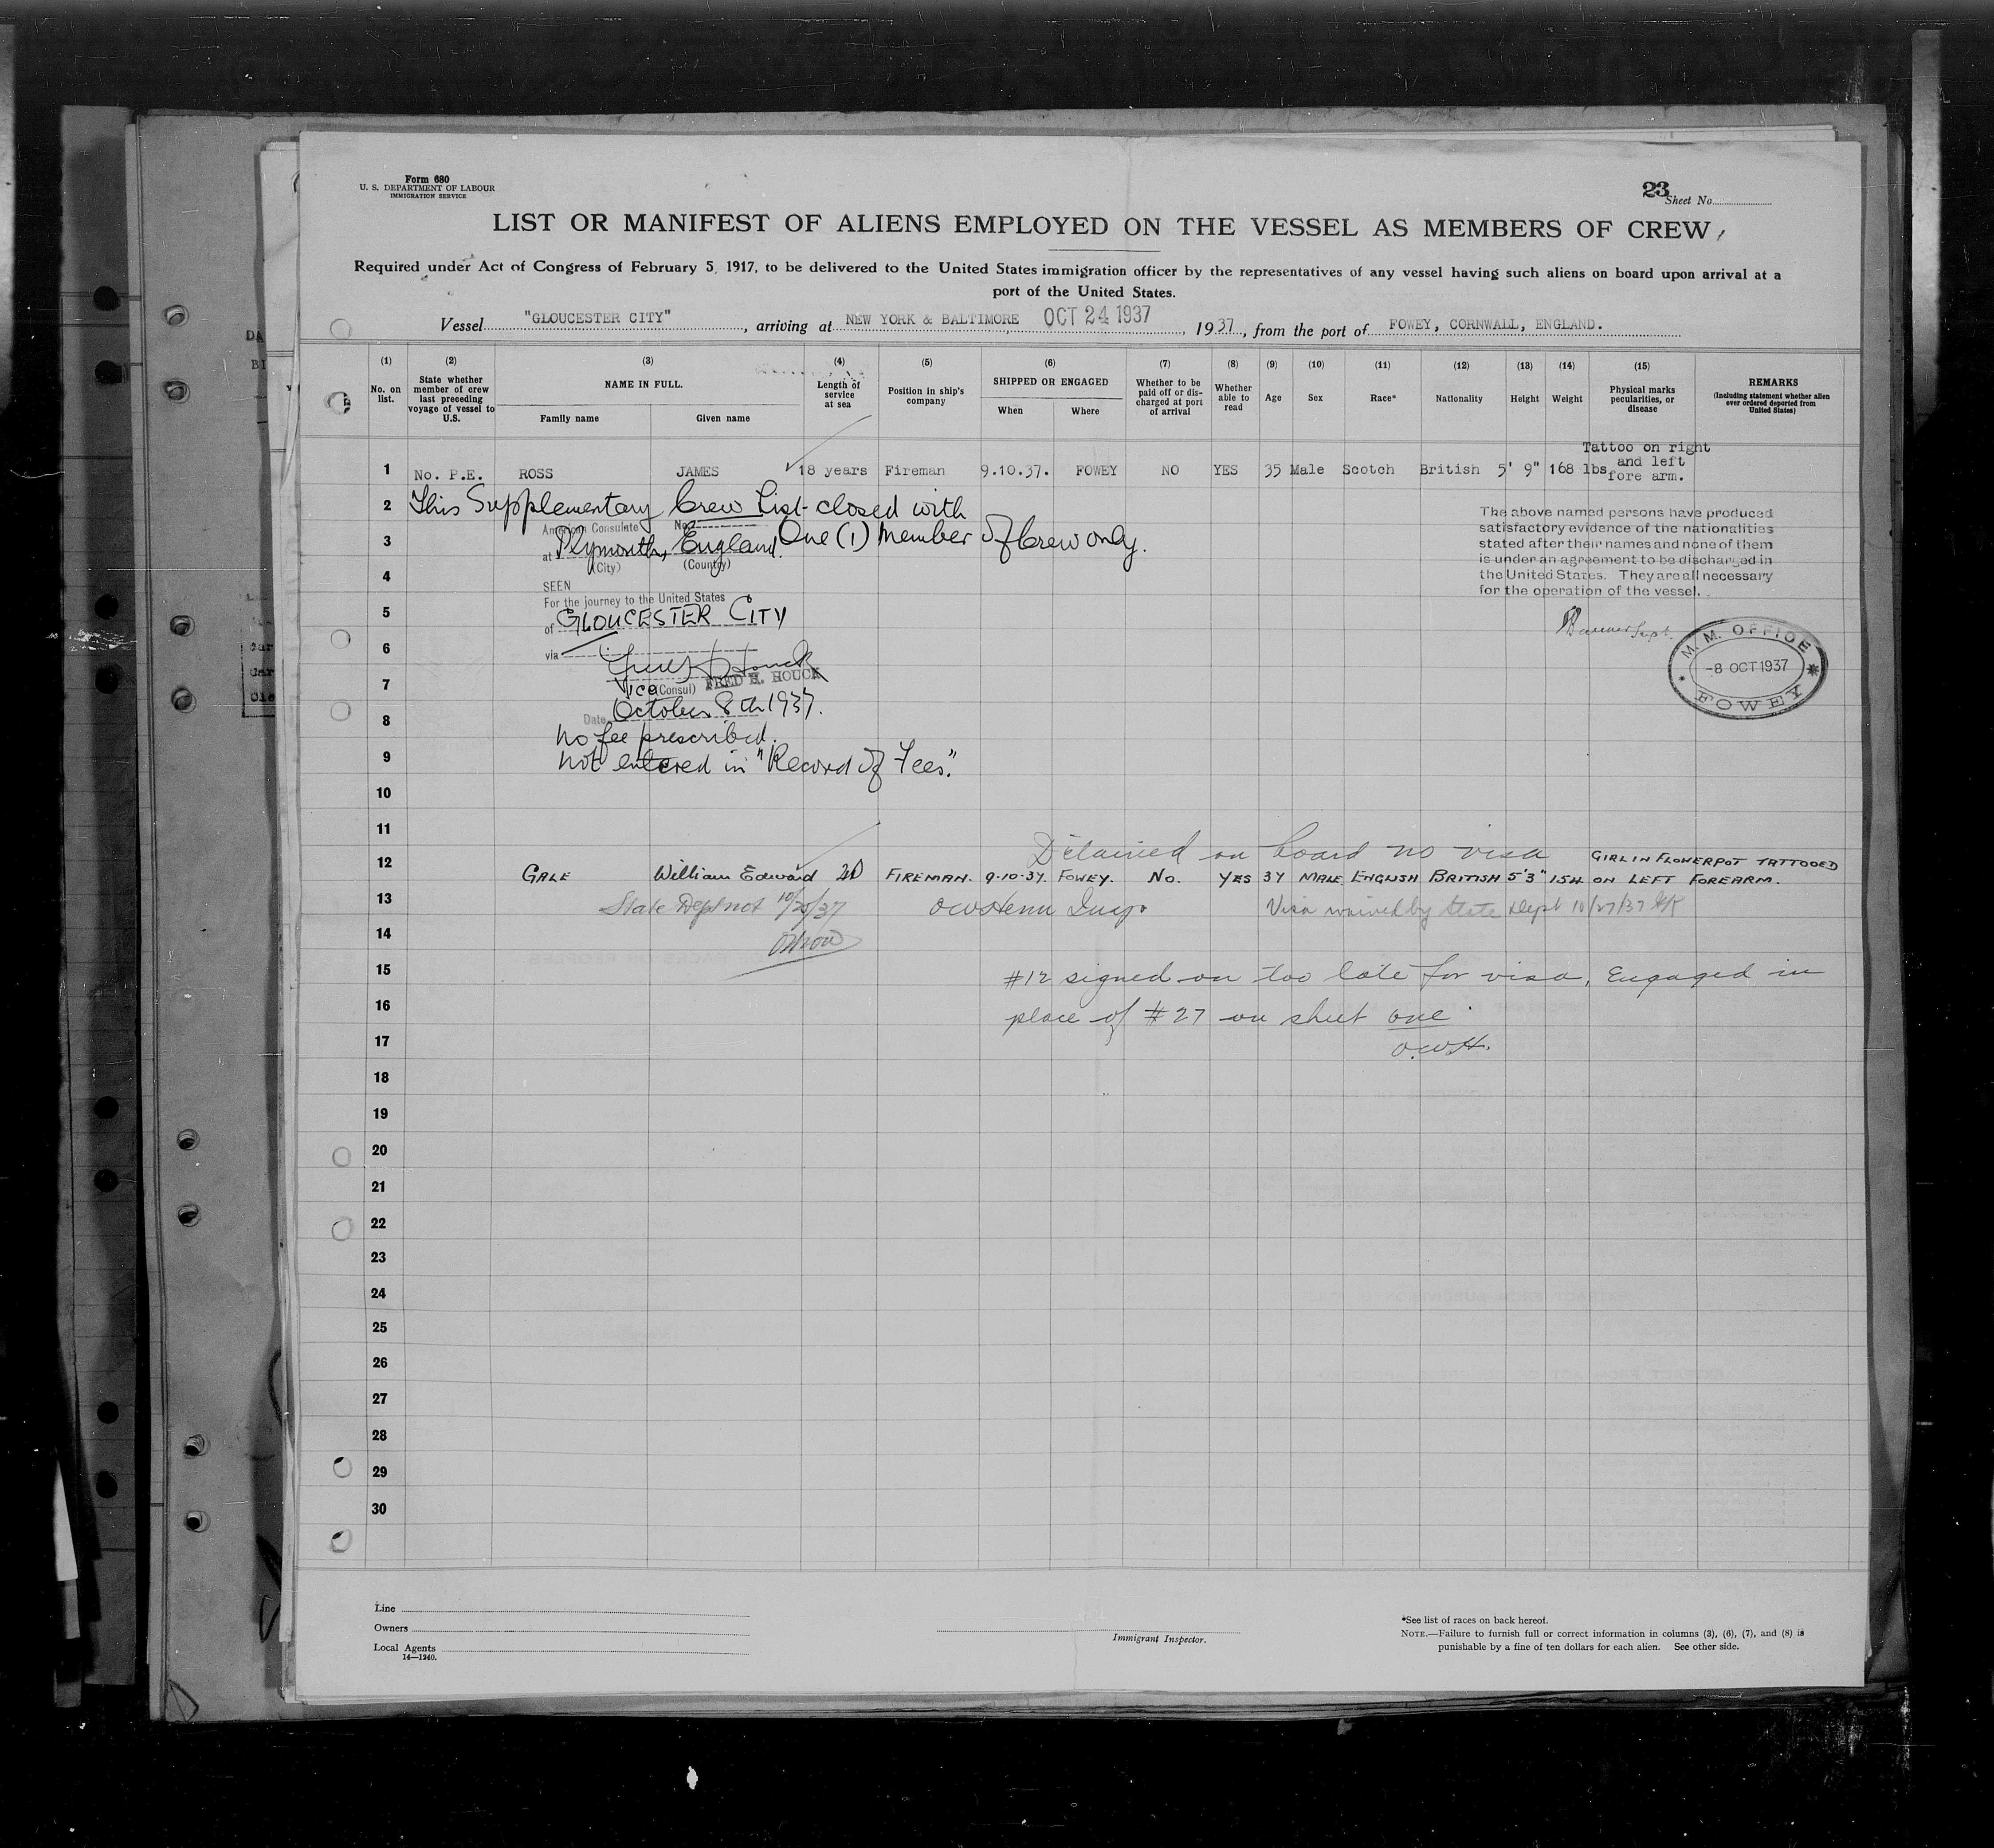 Form 680
U. S. DEPARTMENT OF LABOUR
IMMIGRATION SERVICE
23
Sheet No.
LIST OR MANIFEST OF ALIENS EMPLOYED ON THE VESSEL AS MEMBERS OF CREW
Required under Act of Congress of February 5, 1917, to be delivered to the United States immigration officer by the representatives of any vessel having such aliens on board upon arrival at a
port of the United States.
Vessel "GLOUCESTER CITY", arriving at NEW YORK & BALTIMORE OCT 24 1937, 1937, from the port of FOWEY, CORNWALL, ENGLAND.
(1) (2) (3) (4) (5) (6) (7) (8) (9) (10) (11) (12) (13) (14) (15)
No. on list. State whether member of crew last preceding voyage of vessel to U.S. NAME IN FULL. Family name Given name Length of service at sea Position in ship's company SHIPPED OR ENGAGED When Where Whether to be paid off or discharged at port of arrival Whether able to read Age Sex Race* Nationality Height Weight Physical marks pecularities, or disease REMARKS (Including statement whether alien ever ordered deported from United States)
1 No. P.E. ROSS JAMES 18 years Fireman 9.10.37. FOWEY NO YES 35 Male Scotch British 5' 9" 168 lbs Tattoo on right and left fore arm.
2 This Supplementary Crew List closed with
3 One (1) Member of Crew only.
American Consulate No.
at Plymouth, England.
(City) (Country)
4
SEEN
For the journey to the United States
5
of GLOUCESTER CITY
6
via
7
Vice (Consul) FRED H. HOUCK
8
Date October 8th 1937.
No fee prescribed.
9
Not entered in "Record of Fees."
The above named persons have produced
satisfactory evidence of the nationalities
stated after their names and none of them
is under an agreement to be discharged in
the United States. They are all necessary
for the operation of the vessel.
M. M. OFFICE
-8 OCT 1937
FOWEY
10
11
Detained on board no visa
12 GALE William Edward 20 FIREMAN. 9-10-37. FOWEY. No. YES 37 MALE ENGLISH BRITISH 5'3" 154 GIRL IN FLOWERPOT TATTOOED ON LEFT FOREARM.
13 State Dept not 10/25/37 Visa waived by State Dept 10/27/37
14
15 #12 signed on too late for visa, Engaged in
16 place of #27 on sheet one.
17 O.W.H.
18
19
20
21
22
23
24
25
26
27
28
29
30
Line
Owners
Local Agents
14—1240.
Immigrant Inspector.
*See list of races on back hereof.
NOTE.—Failure to furnish full or correct information in columns (3), (6), (7), and (8) is
punishable by a fine of ten dollars for each alien. See other side.